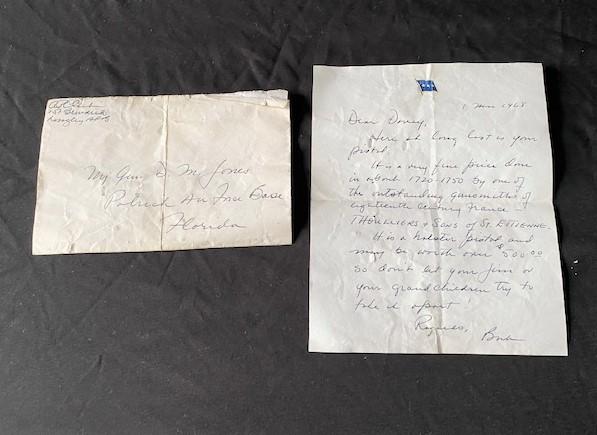 Langley AFB
Maj Gen D M Jones
Patrick Air Force Base
Florida
1 Mar 1968
Dear Davey,
Here at long last is your
pistol.
It is a very fine piece done
in about 1720-1750 by one of
the outstanding gunsmiths of
eighteenth century France -
THOULLIERS & SONS of ST. ETIENNE.
It is a holster pistol and
may be worth over $500.00
so don't let your
or
your grandchildren try to
take it apart!
Regards,
Bob